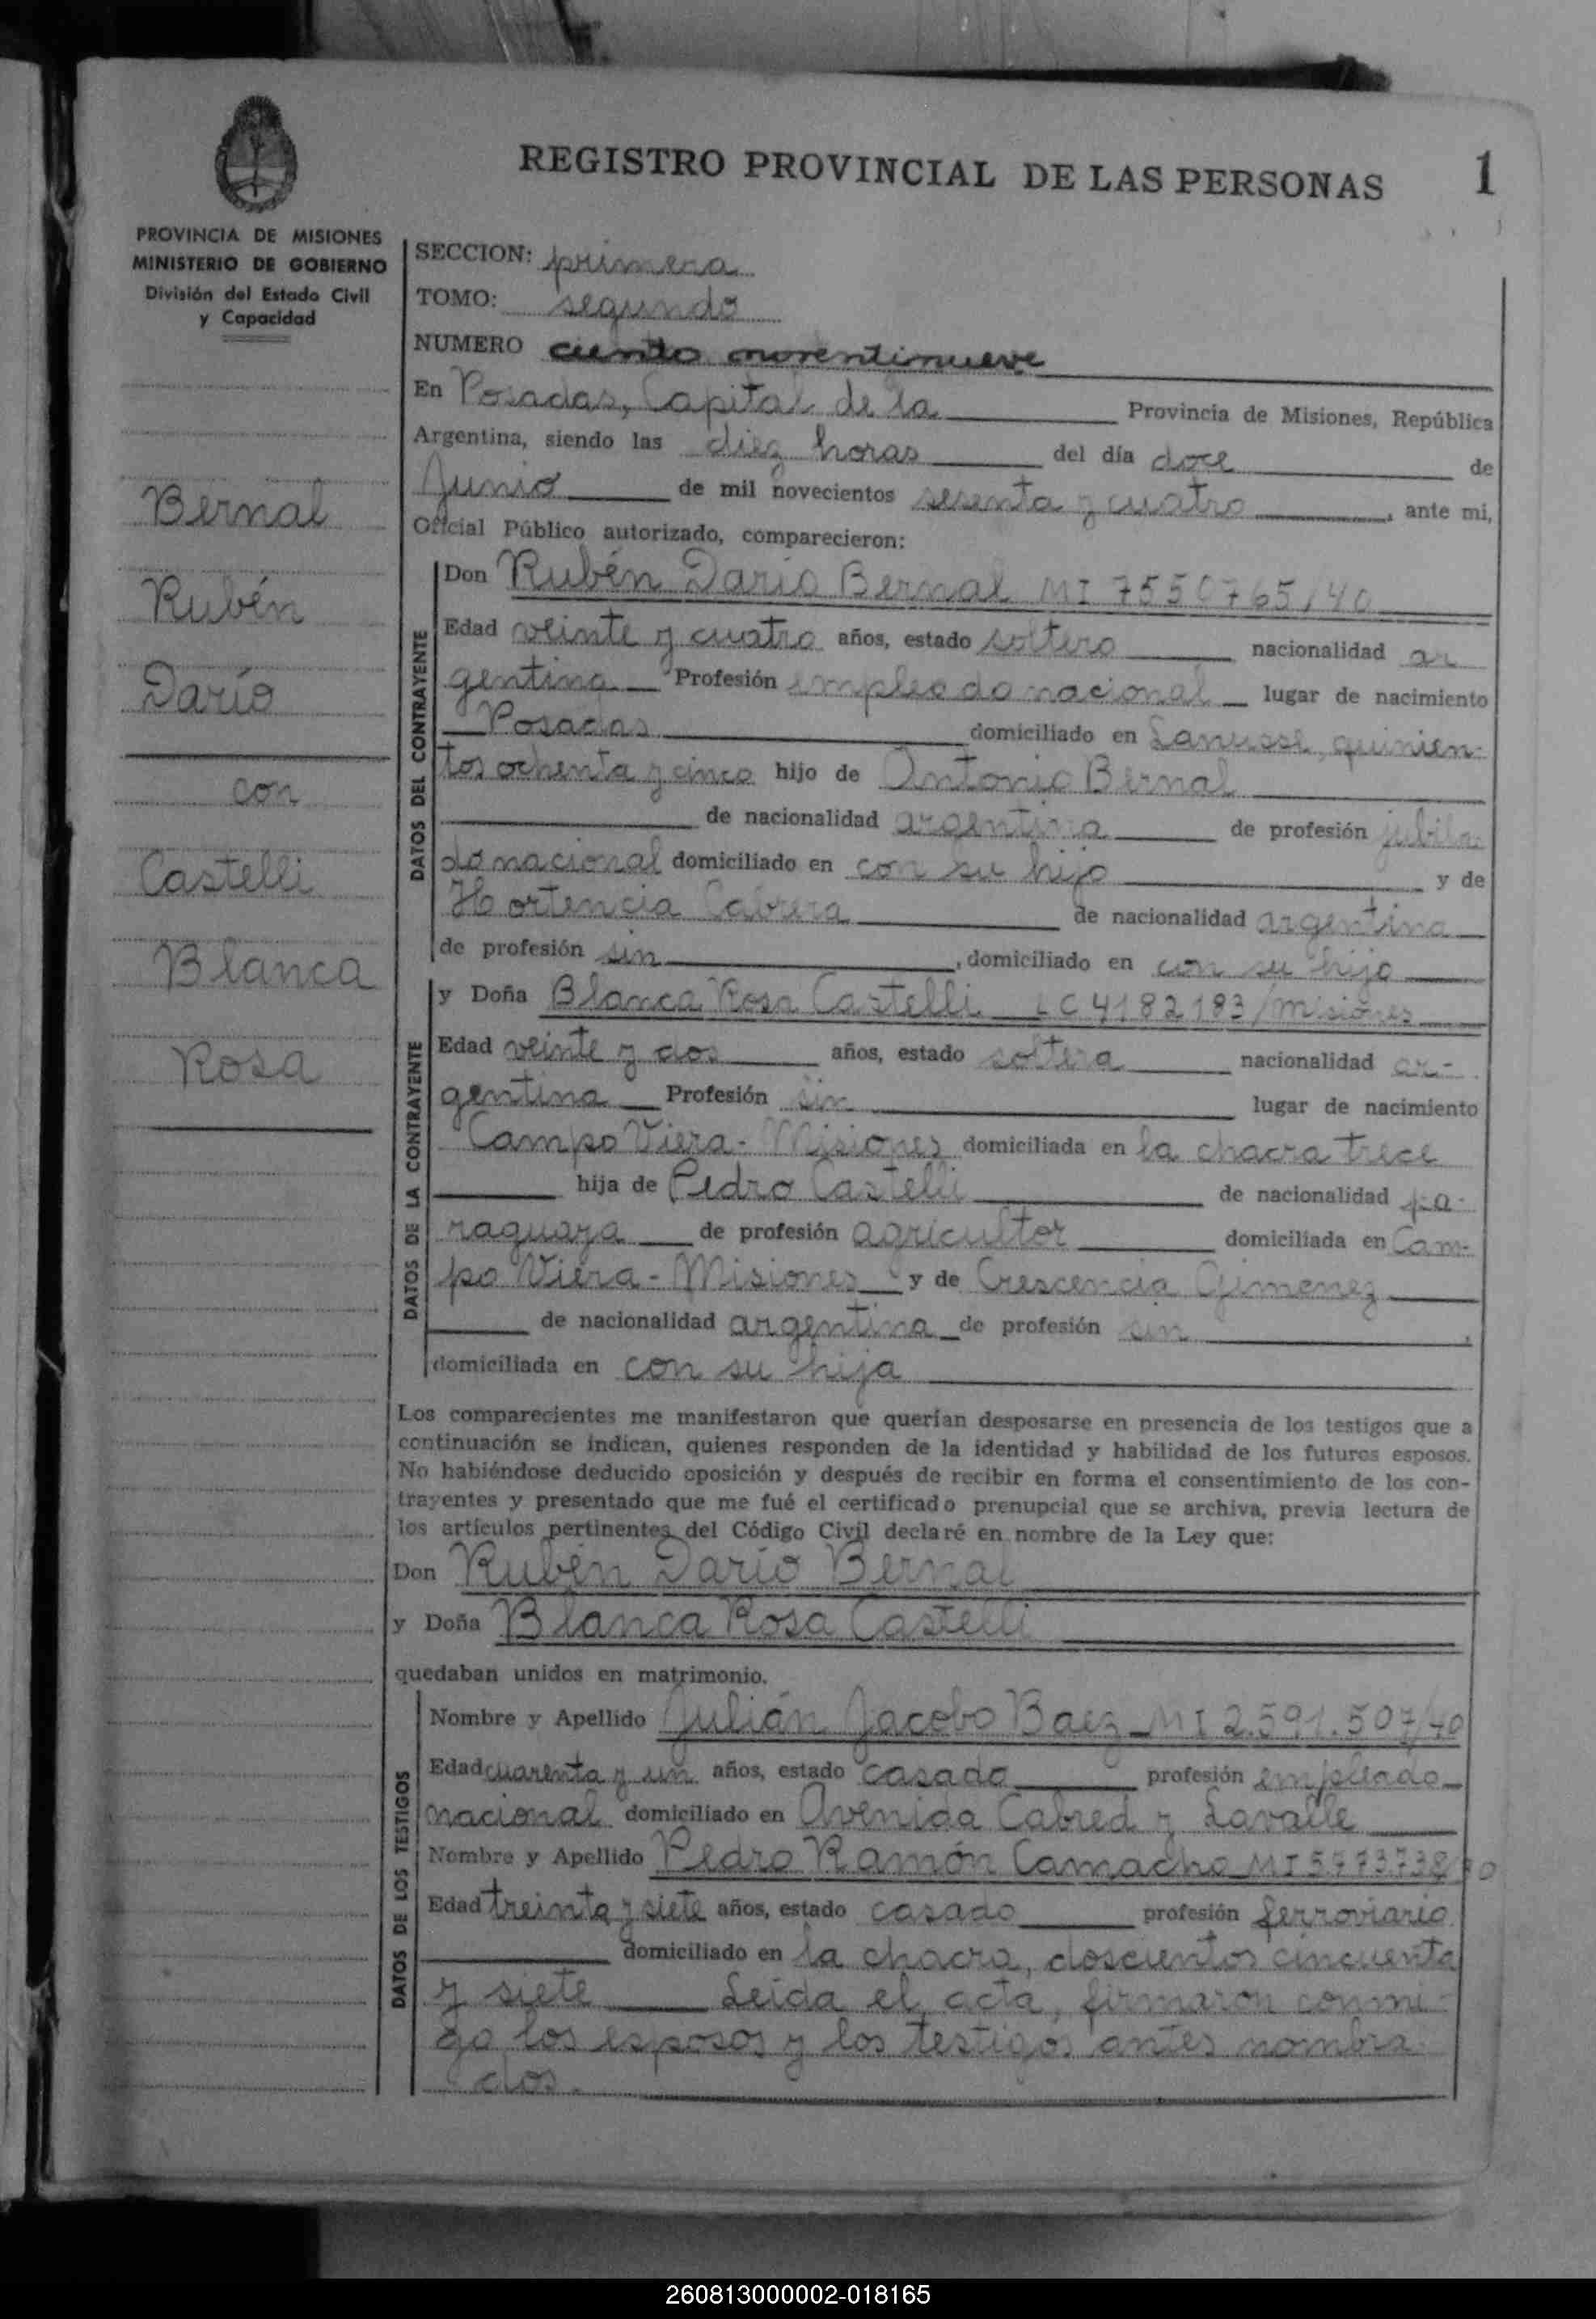 REGISTRO PROVINCIAL DE LAS PERSONAS
1
PROVINCIA DE MISIONES
MINISTERIO DE GOBIERNO
División del Estado Civil
y Capacidad
Bernal
Rubén
Darío
con
Castelli
Blanca
Rosa
SECCION: primera
TOMO: segundo
NUMERO ciento noventinueve
En Posadas, Capital de la Provincia de Misiones, República
Argentina, siendo las diez horas del día doce de
Junio de mil novecientos sesenta y cuatro, ante mi,
Oficial Público autorizado, comparecieron:
DATOS DEL CONTRAYENTE
Don Rubén Darío Bernal MI 7550765/40
Edad veinte y cuatro años, estado soltero nacionalidad ar
gentina Profesión empleado nacional lugar de nacimiento
Posadas domiciliado en Lanusse, quinien-
tos ochenta y cinco hijo de Antonio Bernal
de nacionalidad argentina de profesión jubila
do nacional domiciliado en con su hijo y de
Hortencia Cabrera de nacionalidad argentina
de profesión sin, domiciliado en con su hijo
DATOS DE LA CONTRAYENTE
y Doña Blanca Rosa Castelli LC 4182183/Misiones
Edad veinte y dos años, estado soltera nacionalidad ar-
gentina Profesión sin lugar de nacimiento
Campo Viera - Misiones domiciliada en la chacra trece
hija de Pedro Castelli de nacionalidad pa-
raguaya de profesión agricultor domiciliada en Cam-
po Viera - Misiones y de Crescencia Gimenez
de nacionalidad argentina de profesión sin,
domiciliada en con su hija
Los comparecientes me manifestaron que querían desposarse en presencia de los testigos que a
continuación se indican, quienes responden de la identidad y habilidad de los futuros esposos.
No habiéndose deducido oposición y después de recibir en forma el consentimiento de los con-
trayentes y presentado que me fué el certificado prenupcial que se archiva, previa lectura de
los artículos pertinentes del Código Civil declaré en nombre de la Ley que:
Don Rubén Darío Bernal
y Doña Blanca Rosa Castelli
quedaban unidos en matrimonio.
DATOS DE LOS TESTIGOS
Nombre y Apellido Julián Jacobo Baez MI 2.591.507/40
Edad cuarenta y un años, estado casado profesión empleado
nacional domiciliado en Avenida Cabred y Lavalle
Nombre y Apellido Pedro Ramón Camacho MI
Edad treinta y siete años, estado casado profesión ferroviario
domiciliado en la chacra, doscientos cincuenta
y siete Leida el acta, firmaron conmi-
go los esposos y los testigos antes nombra
dos.
260813000002-018165